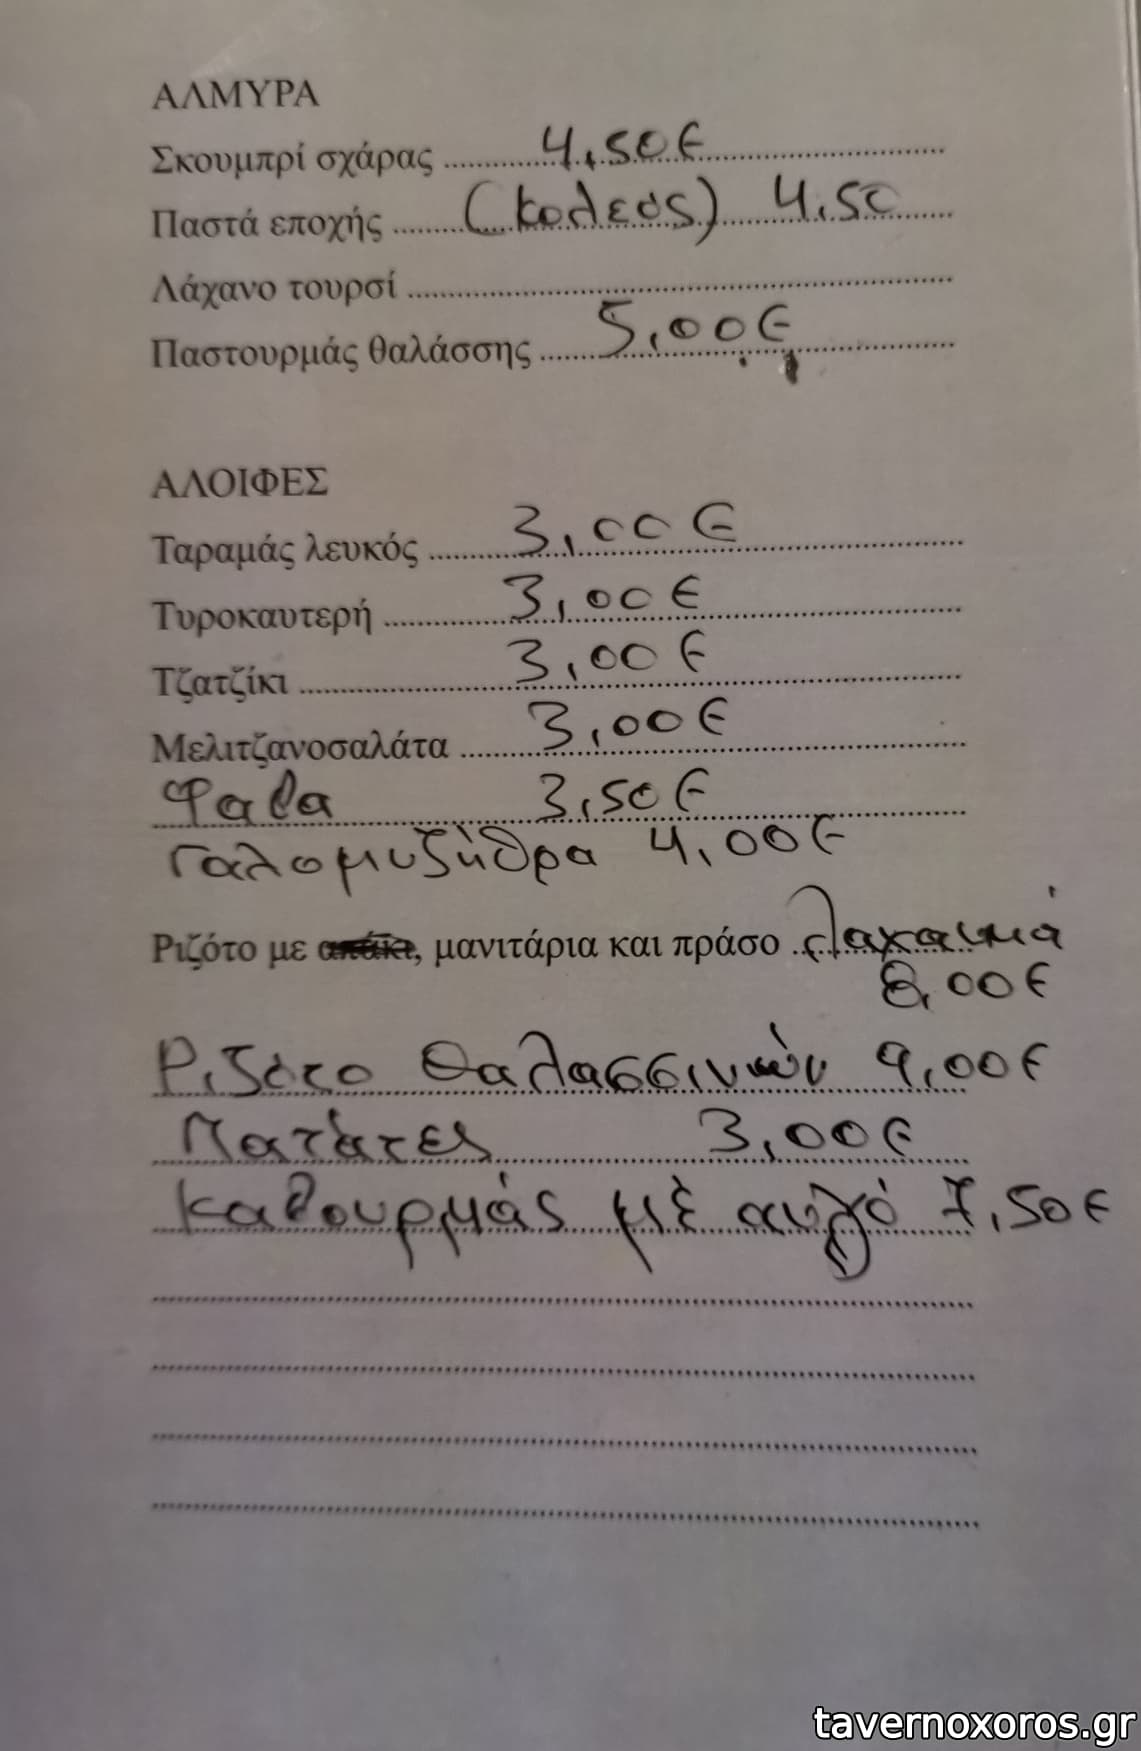 ΑΛΜΥΡΑ
Σκουμπρί σχάρας ........ 4,50€ ........
Παστά εποχής ........ (κολεος) ........ 4,50 ........
Λάχανο τουρσί ........
Παστουρμάς θαλάσσης ........ 5,00€ ........
ΑΛΟΙΦΕΣ
Ταραμάς λευκός ........ 3,00€ ........
Τυροκαυτερή ........ 3,00€ ........
Τζατζίκι ........ 3,00€ ........
Μελιτζανοσαλάτα ........ 3,00€ ........
Φαβα 3,50€
Γαλομυζήθρα 4,00€
Ριζότο με απάκι, μανιτάρια και πράσο ... λαχανικά
8,00€
Ριζότο θαλασσινών 9,00€
Πατάτες 3,00€
Καβουρμάς μέ αυγό 7,50€
tavernoxoros.gr